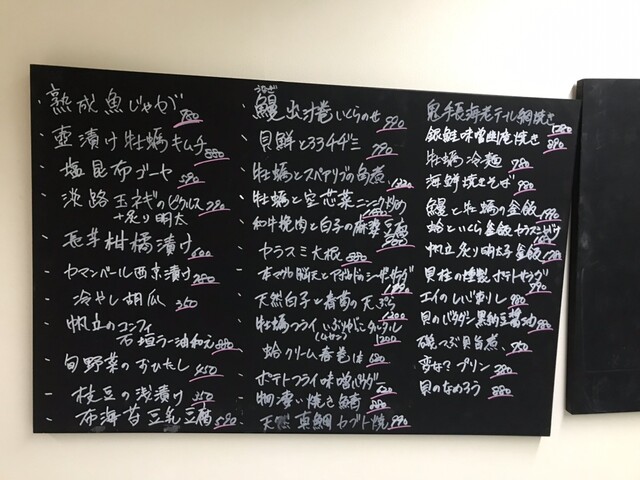 ・熟成魚じゃが 780
・壺漬け牡蠣キムチ 880
・塩昆布ゴーヤ 590
・淡路玉ねぎのピクルス 780
+炙り明太
・長芋柑橘漬け 600
・カマンベール西京漬け 780
・冷やし胡瓜 350
・帆立のコンフィ
石垣ラー油和え 880
・旬野菜のおひたし 450
・枝豆の浅漬け 350
・布海苔豆乳豆腐 590
・鰻出汁巻いくらのせ 990
・貝鮮とろろチヂミ 990
・牡蠣とスペアリブの角煮
・牡蠣と空芯菜ニンニク炒め
・和牛挽肉と白子の麻婆豆腐
・カラスミ大根 880
・本マグロ脳天とアボカドのシーザーサラダ
・天然白子と春菊の天ぷら 1200
・牡蠣フライいぶりがっこタルタル
1200
・蛤クリーム春巻 680
・ポテトフライ味噌バター 600
・物凄い焼き鯖 880
・天然真鯛カブト焼 990
鬼手長海老テール網焼き 1280
銀鮭味噌幽庵焼き 890
牡蠣冷麺 980
海鮮焼きそば 980
鰻と牡蠣の釜飯 1990
蛤といくら釜飯カラスミがけ
帆立炙り明太子釜飯
貝柱の燻製ポテトサラダ 990
エイのしいぎり 980
貝のバクダン黒納豆醤油 980
磯つぶ貝旨煮 750
変な?プリン 380
貝のなめろう 880